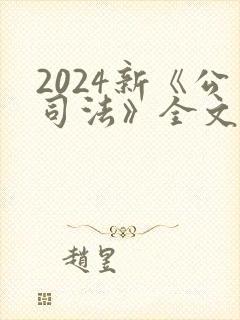 2024新《公
司法》全文
趙昱